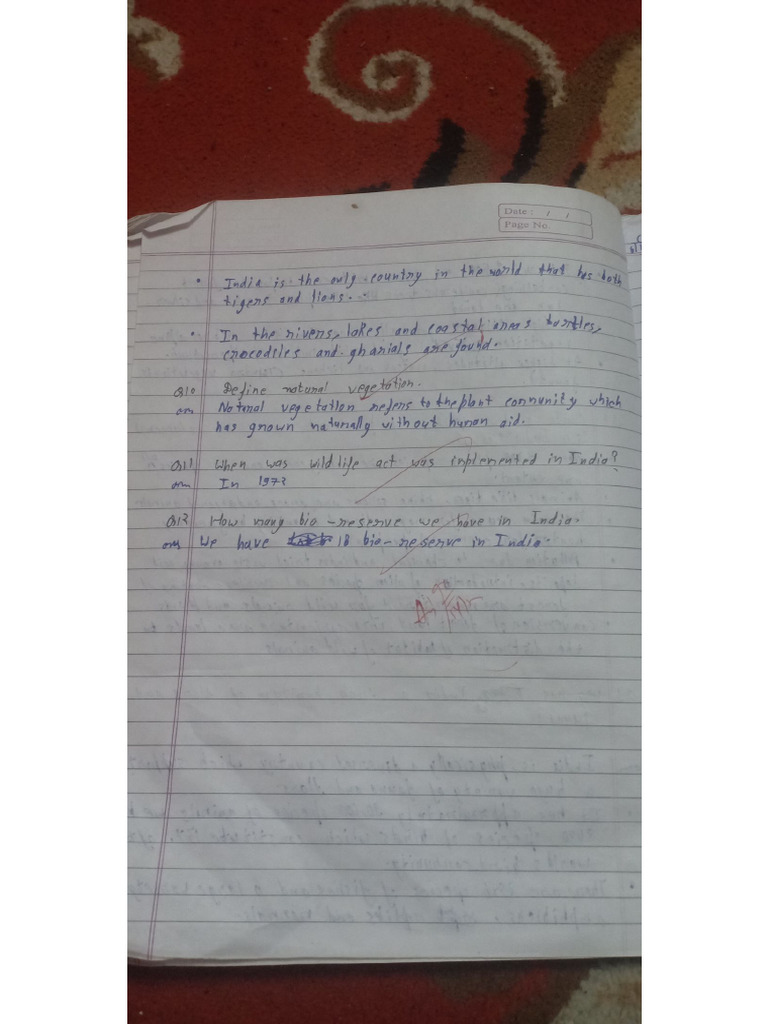 Date : / /
Page No.
• India is the only country in the world that has both
tigers and lions.
• In the rivers, lakes and coastal areas turtles,
crocodiles and gharials are found.
Q10 Define natural vegetation.
ans Natural vegetation refers to the plant community which
has grown naturally without human aid.
Q11 When was wild life act was implemented in India?
ans In 1972
Q12 How many bio-reserve we have in India.
ans We have 18 bio-reserve in India.